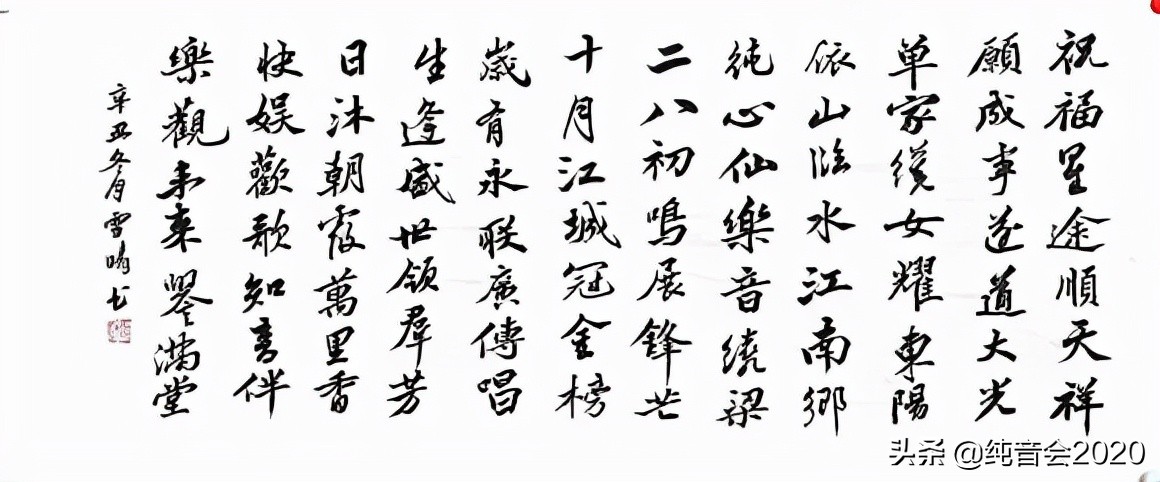 祝福星途順天祥
願成事遂道大光
单家女耀東陽
依山臨水江南鄉
純心仙樂音繞梁
二八初鳴展鋒芒
十月江城冠金榜
歲有永联廣傳唱
生逢盛世領羣芳
日沐朝霞萬里香
快娱歡歌知音伴
樂觀未来譽满堂
辛丑冬月雪书
头条 @纯音会2020